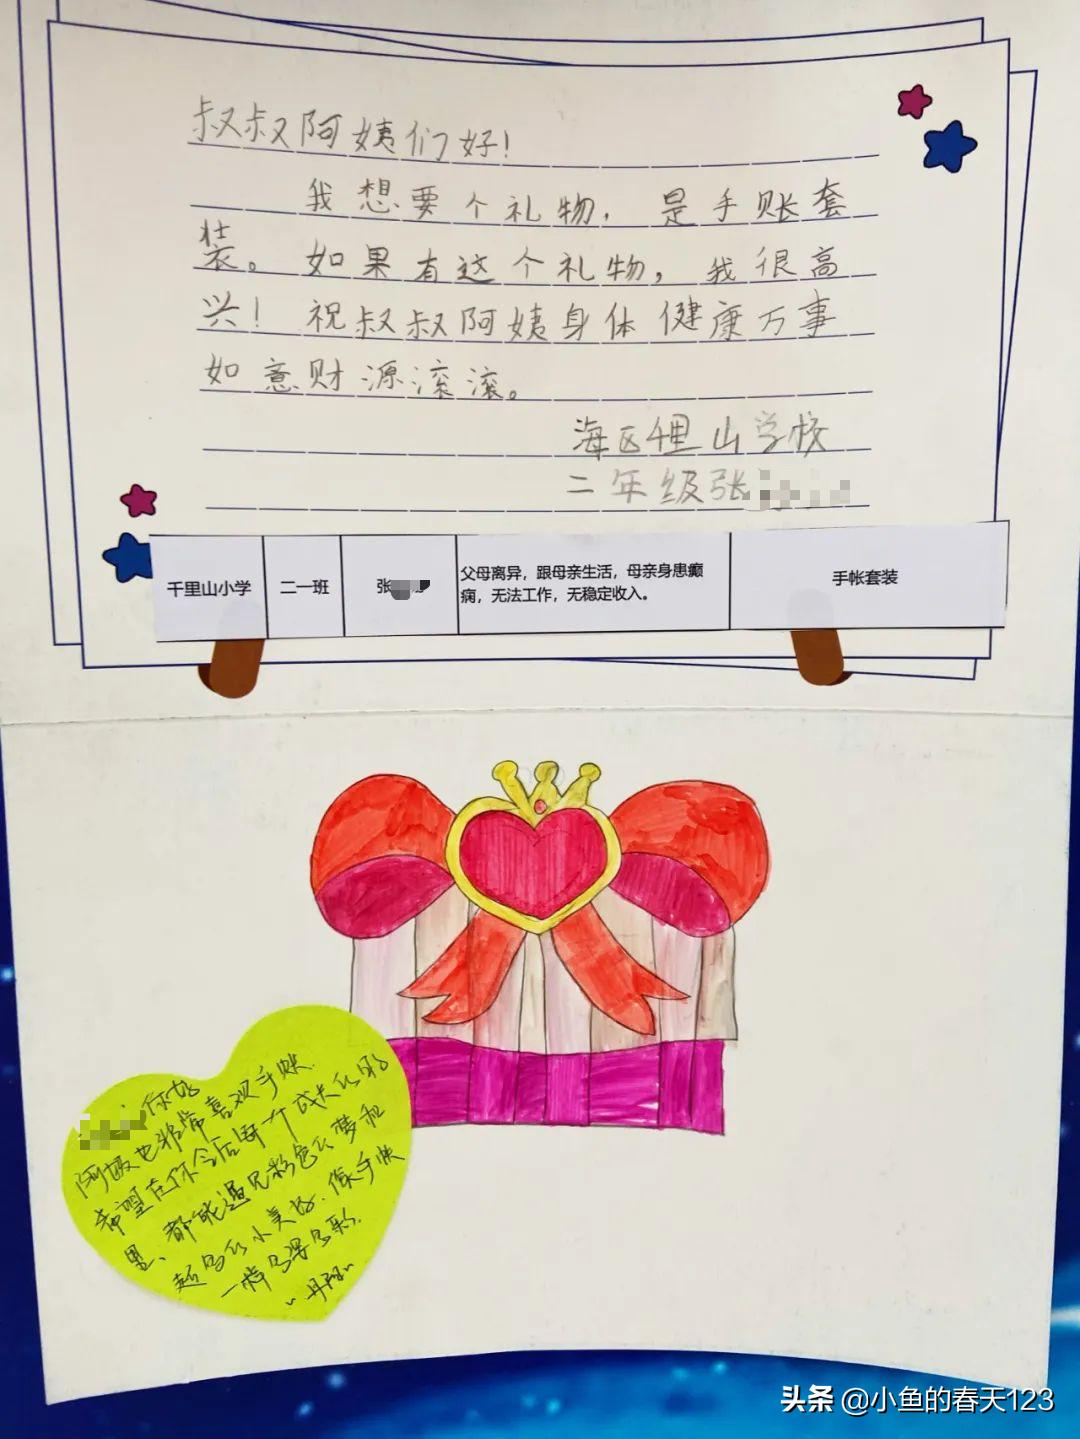 叔叔阿姨们好!
我想要个礼物,是手账套
装。如果有这个礼物,我很高
兴!祝叔叔阿姨身体健康万事
如意财源滚滚。
海区千里山学校
二年级张
千里山小学 二一班 张 父母离异,跟母亲生活,母亲身患癫痫,无法工作,无稳定收入。 手帐套装
你好
阿姨也非常喜欢手账
希望在你今后每一个成长的
里、都能遇见彩色的梦和
的小美好.像手账
一样多姿多彩.
头条 @小鱼的春天123